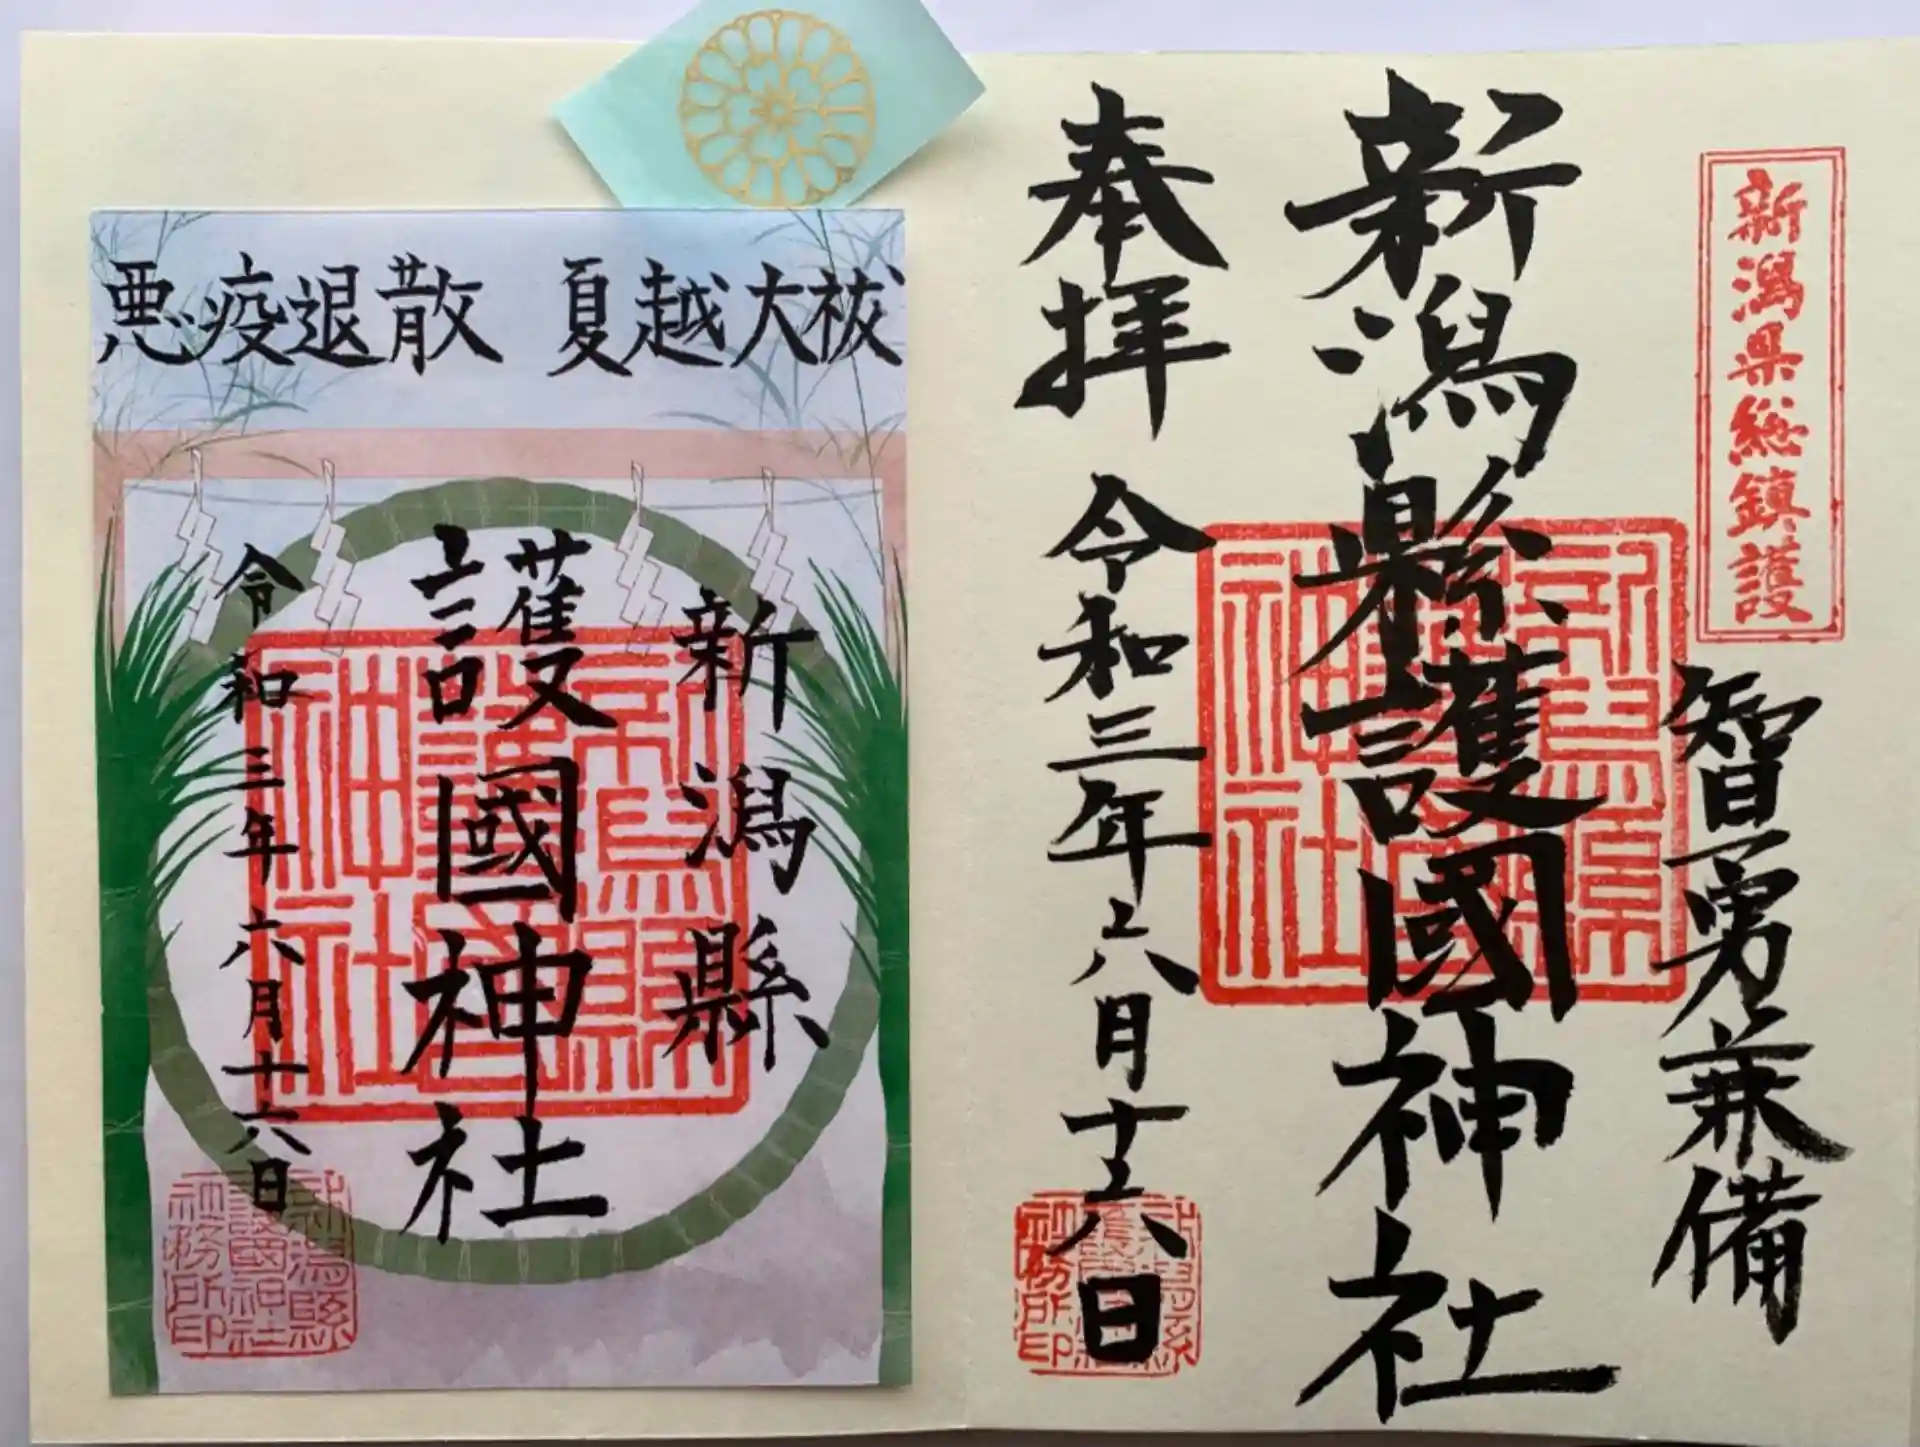 悪疫退散 夏越大祓
新潟縣
護國神社
令和三年六月十六日
新潟縣
護國神社
社務所印
新潟県総鎮護
智勇兼備
新潟縣護國神社
奉拝 令和三年六月十六日